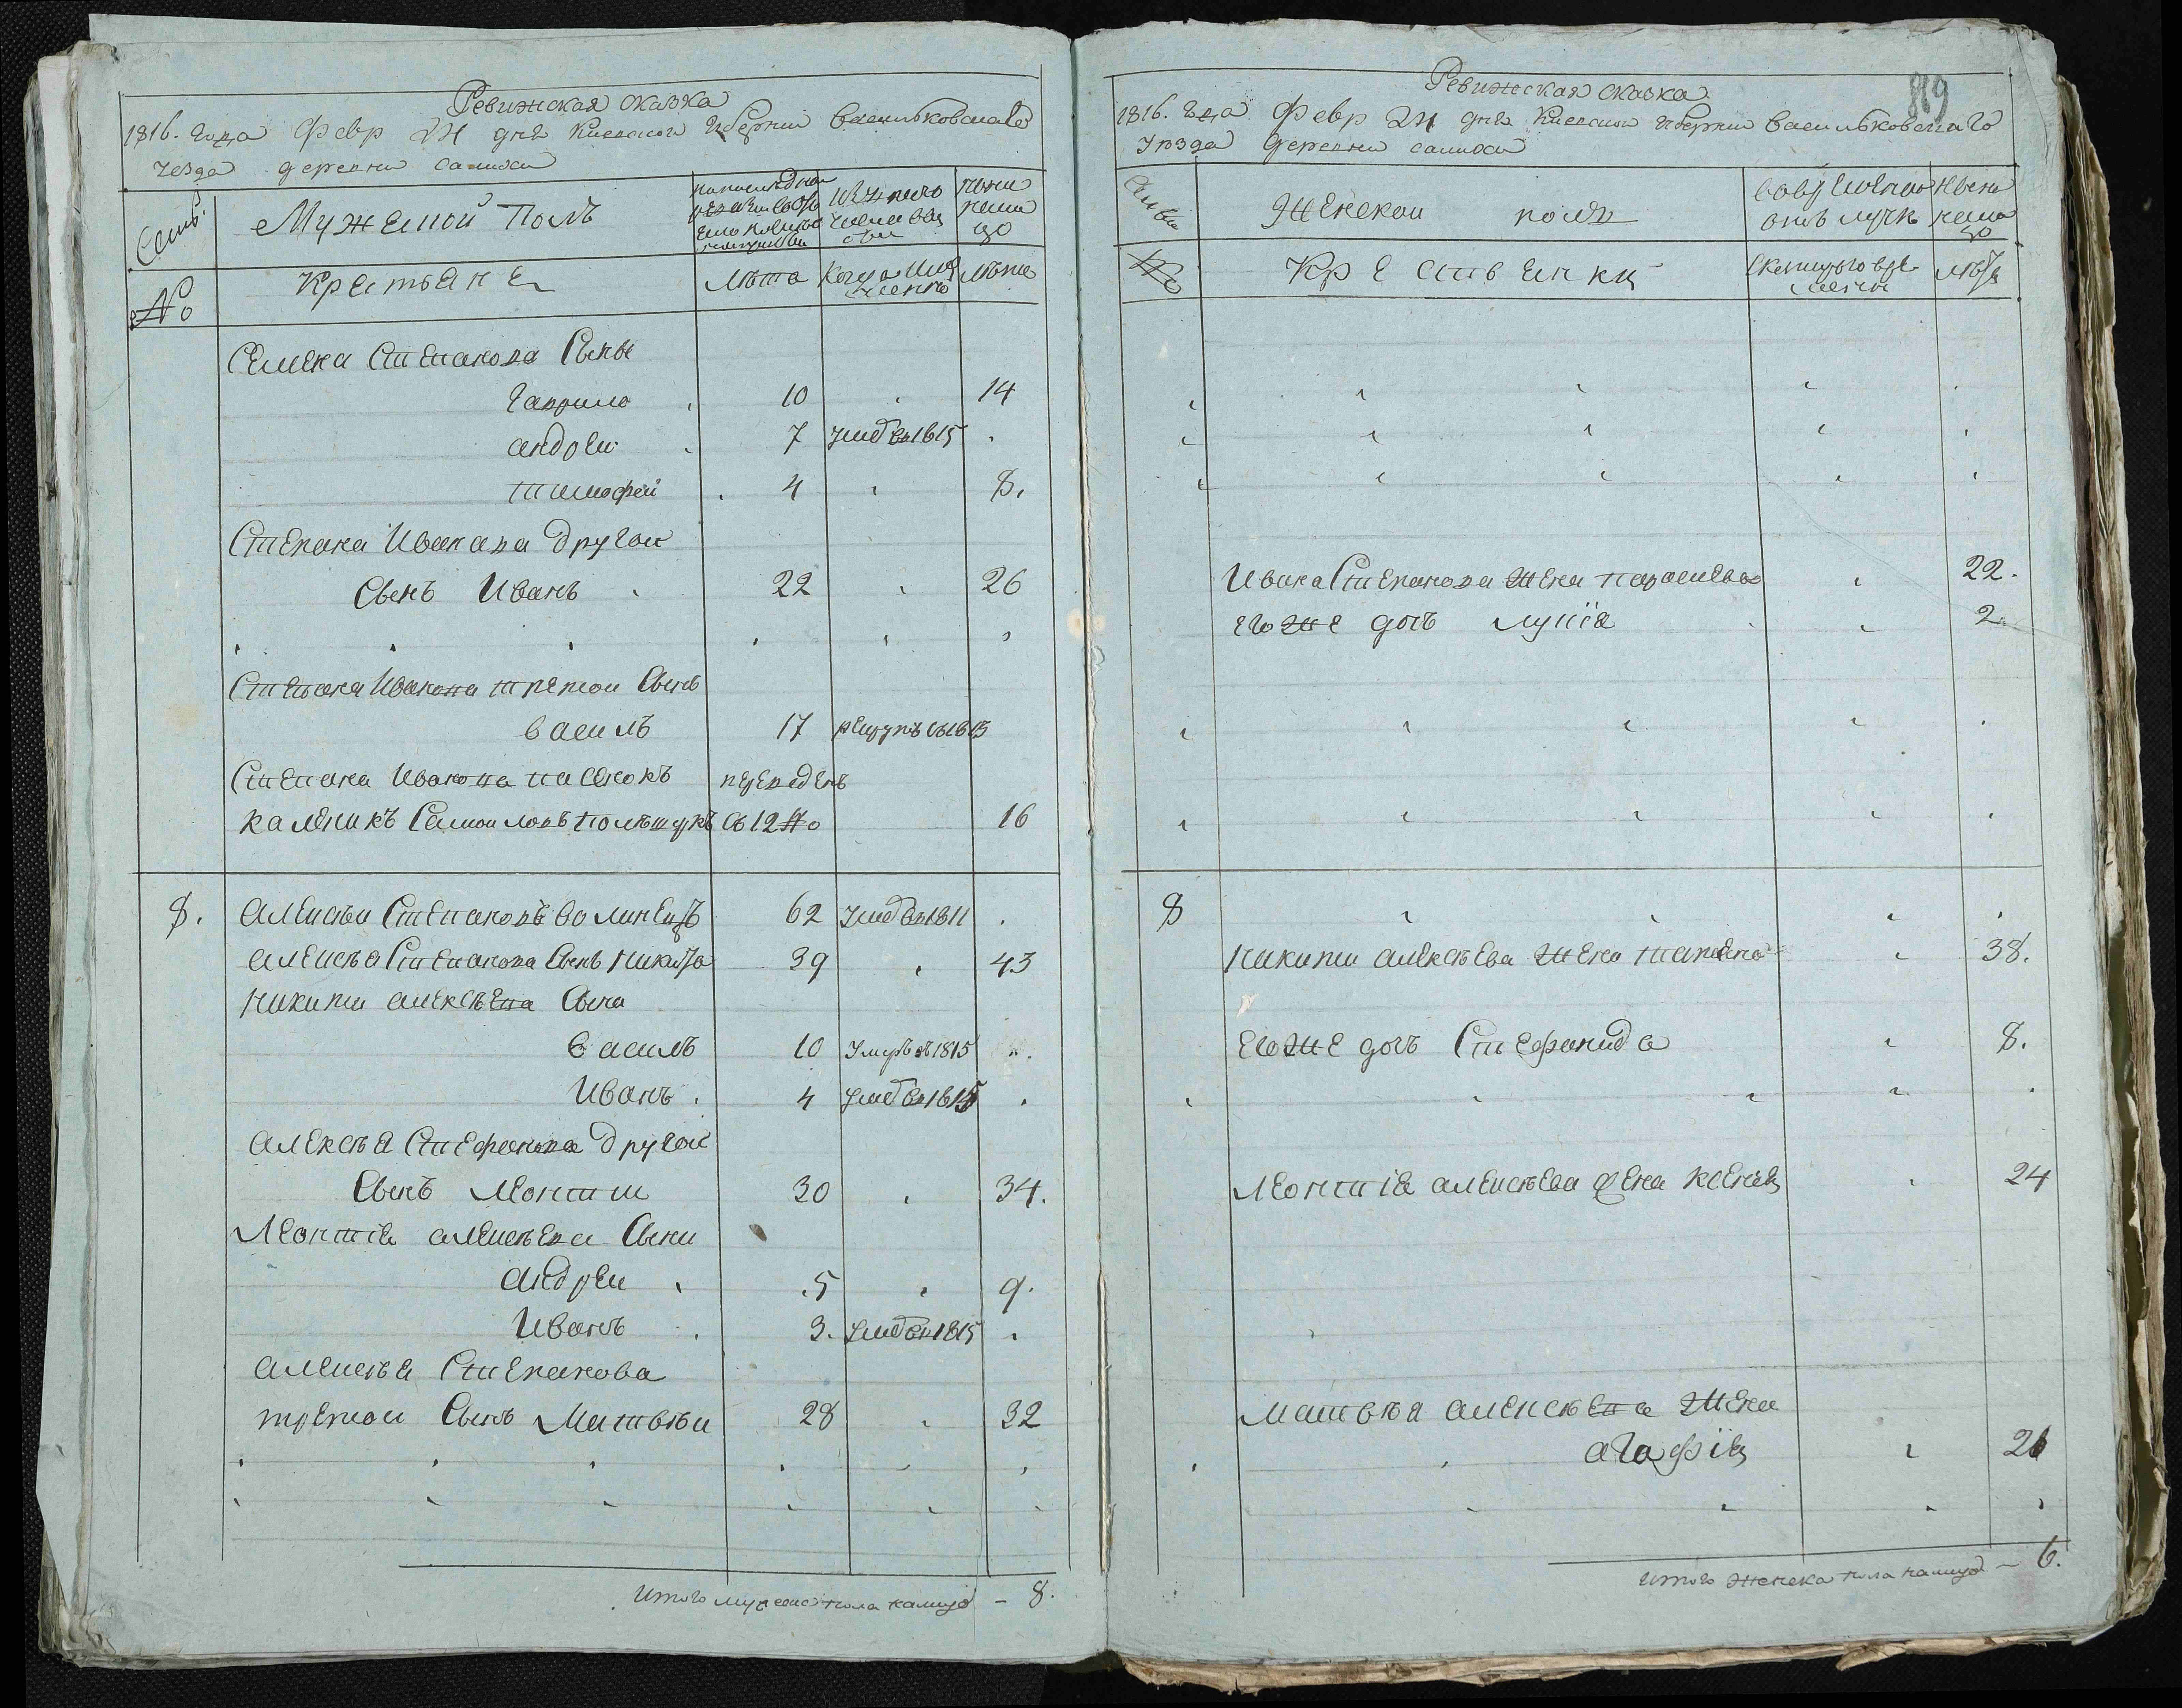 Ревижская сказка
1816. года февр 24 дня Киевской губернии Васильковскаго
уезда деревни
Семьи.
Мужеской Полъ
Изъ того числа выбыли
Ныне налицо
№
Крестьяне
Лета
Когда именно
Лета
Семена Степанова Сыны
Гаврило 10 14
андреи 7 умер в 1815
тимофеи 4 8.
Степана Иванова другои
Сынъ Иванъ 22 26
Степана Иванова третои Сынъ
василь 17 рекрутъ въ 1813
Степана Иванова пасынокъ переведенъ
каленикъ Самоиловъ полещукъ съ 12 № 16
8. алексеи Степановъ волинецъ 62 умер в 1811
алексея Степанова Сынъ никита 39 43
никити алексеева Сына
василь 10 умеръ въ 1815
Иванъ 4 умер в 1815
алексея Стефанова другои
Сынъ леонтии 30 34.
леонтия алексеева Сыни
андреи 5 9.
Иванъ 3. умер в 1815
алексея Степанова
третои Сынъ Матвеи 28 32
Итого мужеска пола налицо – 8.
819
Ревижская сказка
1816. года февр 24 дня Киевской губернии Васильковскаго
уезда деревни
Семьи
Женскои полъ
Во временной отлучке
Ныне налицо
№
Крестьянки
С котораго времени
лета
Ивана Степанова жена параскева 22.
его же дочь лукия 2.
8
никити алексеева жена татяна 38.
его же дочь Стефанида 8.
леонтія алексеева жена ксенія 24
матвея алексеева жена
агафія 26
Итого женска пола налицо – 6.